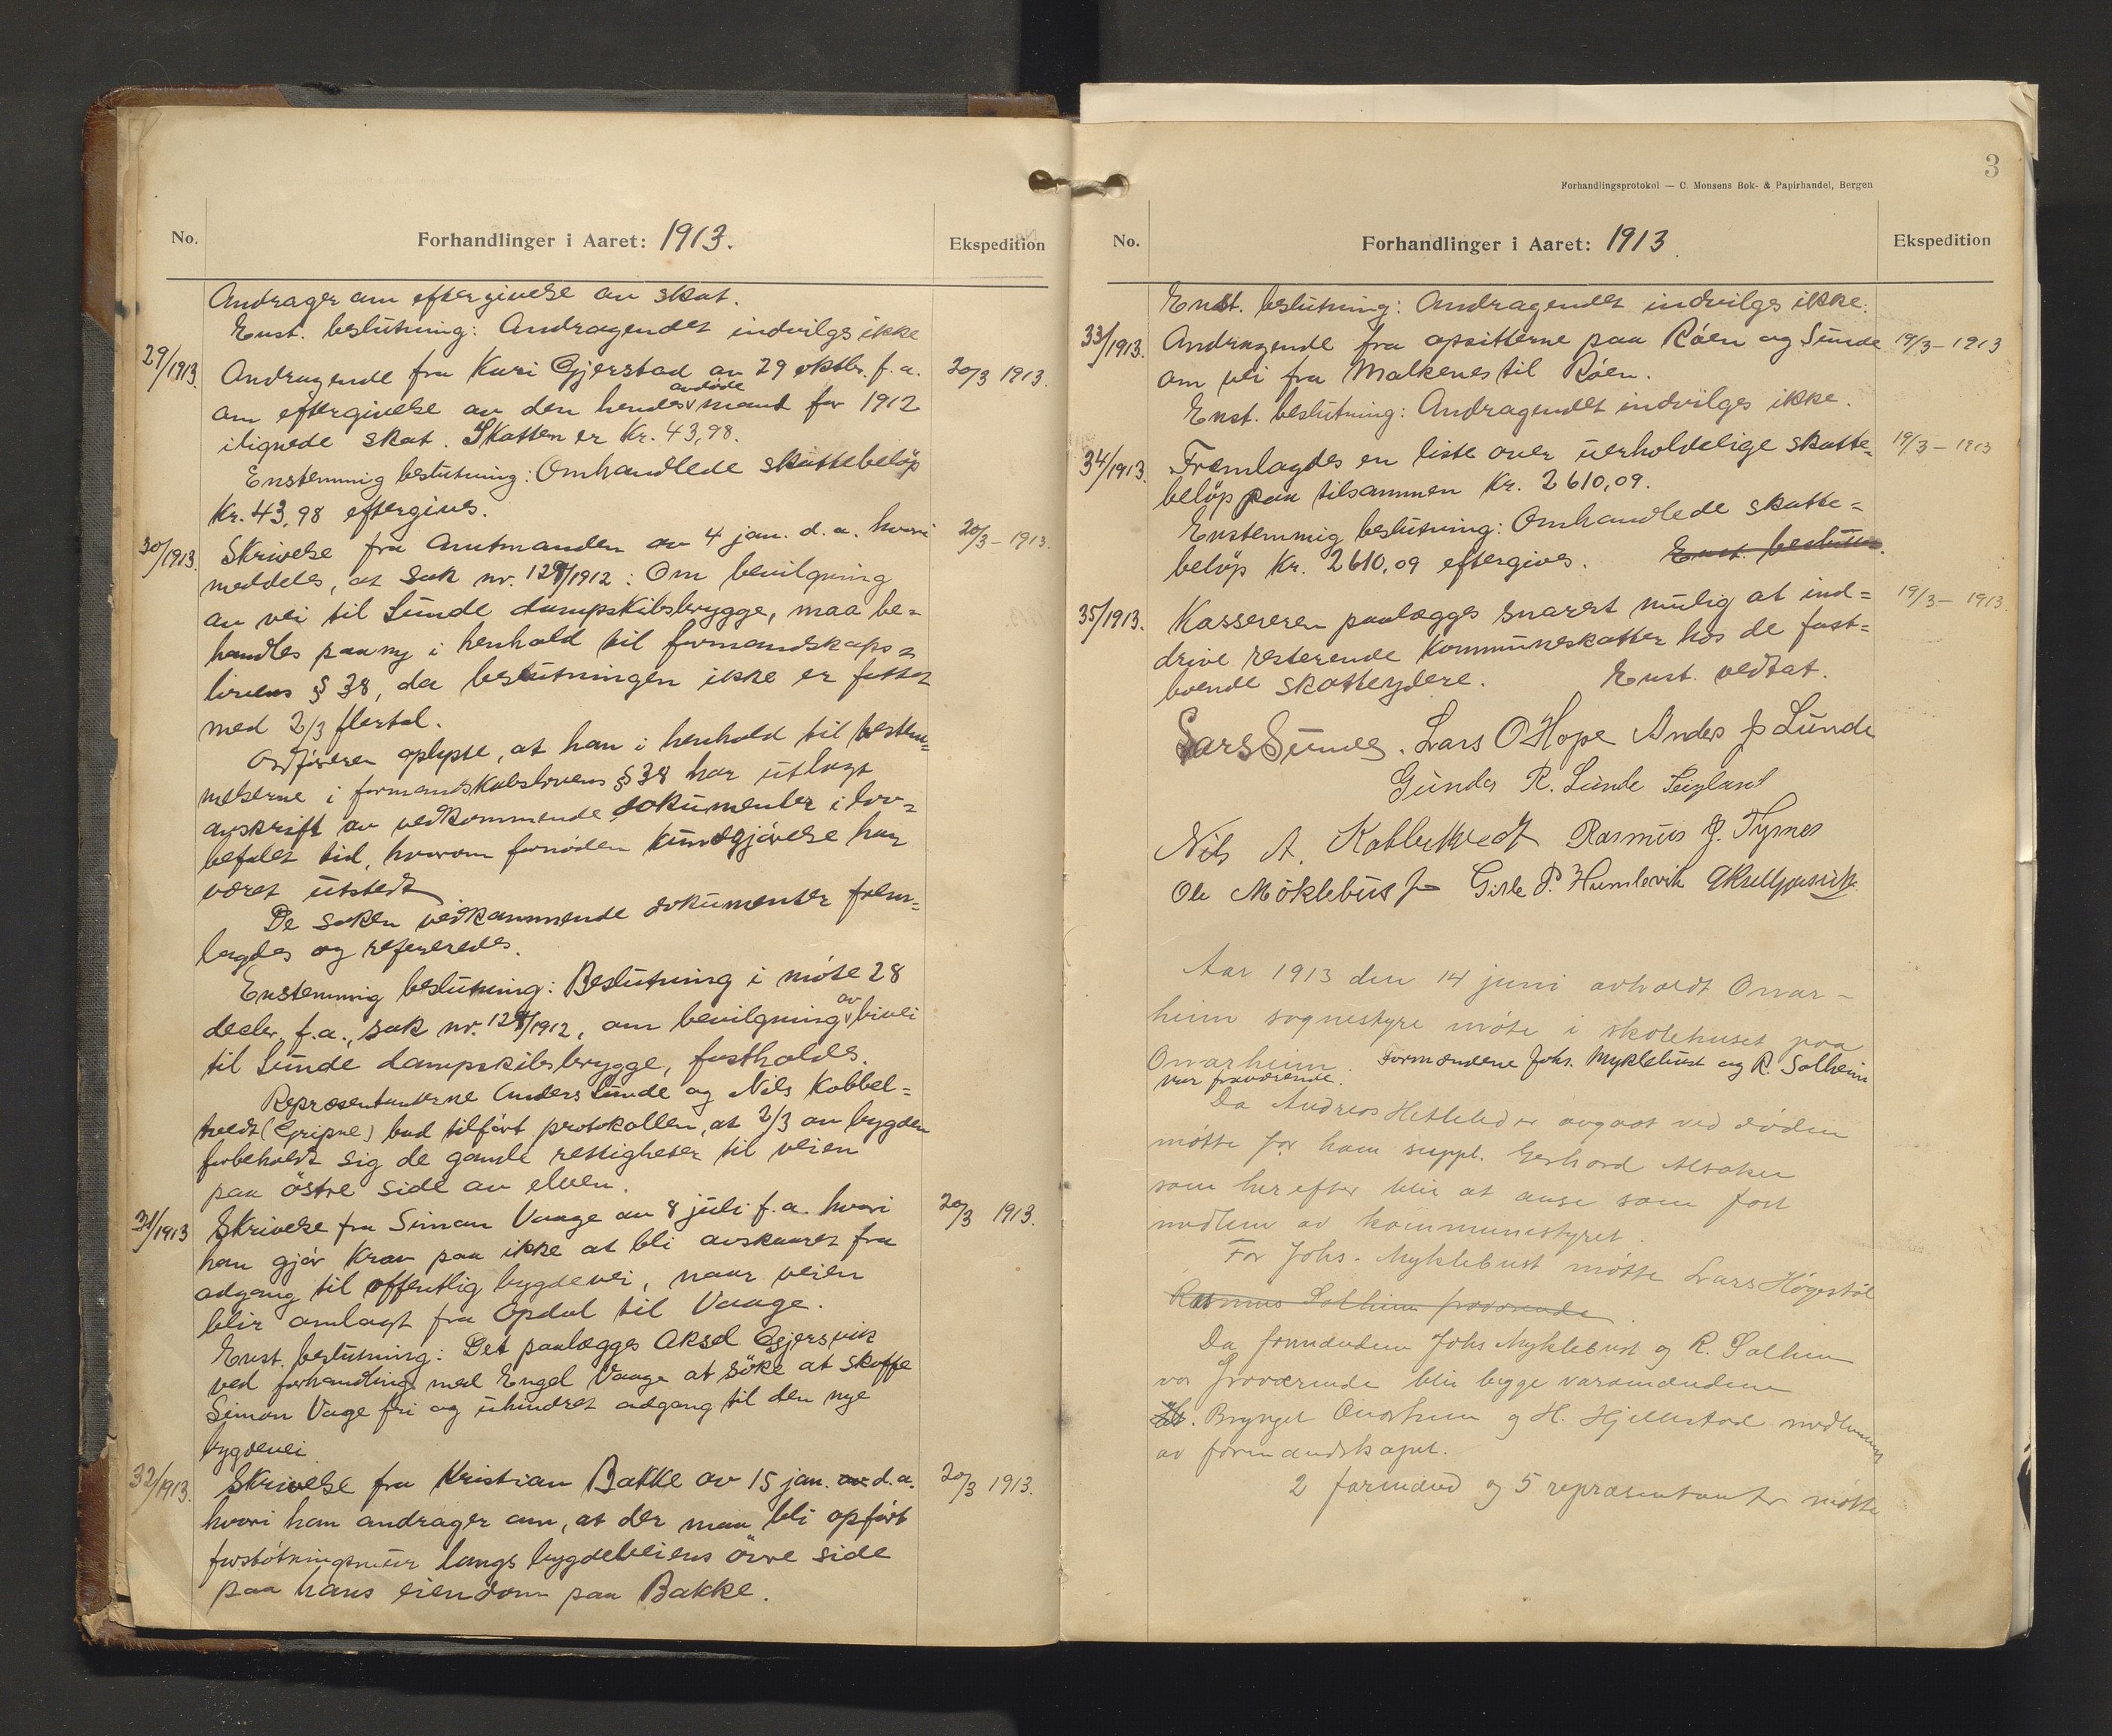 No.
Forhandlinger i Aaret: 1913.
Ekspedition
Andrager om eftergivelse av skat.
Enst. beslutning: Andragendet indvilges ikke
29/1913. Andragende fra Kari Gjerstad av 29 oktbr. f.a. 20/3 1913.
om eftergivelse av den hendes avdøde mand for 1912
ilignede skat. Skatten er Kr. 43,98.
Enstemmig beslutning: Omhandlede skattebeløp
Kr. 43,98 eftergives.
30/1913. Skrivelse fra Amtmanden av 4 jan. d.a. hvori 20/3 - 1913.
meddeles, at sak nr. 129/1912: Om bevilgning
av vei til Sunde dampskibsbrygge, maa be=
handles paany i henhold til formandskaps=
lovens § 38, da beslutningen ikke er fattet
med 2/3 flertal.
Ordføreren oplyste, at han i henhold til bestem=
melserne i formandskabslovens § 38 har utlagt
avskrift av vedkommende dokumenter i lov=
befalet tid, hvorom fornøden kundgjørelse har
været utstedt
De saken vedkommende dokumenter frem=
lagdes og refereredes.
Enstemmig beslutning: Beslutning i møte 28
decbr. f.a., sak nr. 129/1912, om bevilgning av bivei
til Sunde dampskibsbrygge, fastholdes.
Repræsentanterne Anders Sunde og Nils Kobbel=
tvedt (Gripne) bad tilført protokollen, at 2/3 av bygden
forbeholdt sig de gamle rettigheter til veien
paa östre side av elven.
31/1913 Skrivelse fra Simon Vaage av 8 juli f.a. hvori 20/3 1913.
han gjør krav paa ikke at bli avskaaret fra
adgang til offentlig bygdevei, naar veien
blir omlagt fra Opdal til Vaage.
Enst. beslutning: Det paalægges Aksel Gjersvik
ved forhandling med Engel Vaage at söke at skaffe
Simon Vage fri og uhindret adgang til den nye
bygdevei
32/1913. Skrivelse fra Kristian Bakke av 15 jan. av d.a. 20/3 1913.
hvori han andrager om, at der maa bli opført
forstøtningsmur langs bygdeveiens övre side
paa hans eiendom paa Bakke.
3
Forhandlingsprotokol — C. Monsens Bok- & Papirhandel, Bergen
No.
Forhandlinger i Aaret: 1913
Ekspedition
Enst. beslutning: Andragendet indvilges ikke.
33/1913. Andragende fra opsitterne paa Røen og Sunde 19/3 - 1913
om vei fra Malkenes til Røen.
Enst. beslutning: Andragendet indvilges ikke.
34/1913. Fremlagdes en liste over uerholdelige skatte= 19/3 - 1913
beløp paa tilsammen Kr. 2610,09.
Enstemmig beslutning: Omhandlede skatte=
beløp Kr. 2610,09 eftergives. Enst. beslutter.
35/1913. Kassereren paalægges snarest mulig at ind= 19/3 - 1913.
drive resterende kommuneskatter hos de fast=
boende skatteydere. Enst. vedtat.
Lars Sunde. Lars O Hope Anders J Sunde
Gunder R. Sunde
Nils A. Kobbeltvedt Rasmus J. Tysnes
Ole Møklebust Gisle P. Humlevik
Aar 1913 den 14 juni avholdt Onar-
heim sognestyre møte i skolehuset paa
Onarheim. Formændene Johs. Myklebust og R. Solheim
var fraværende.
Da Andreas Hetleled er avgaat ved døden
møtte for ham suppl. Gerhard Alsaker
som herefter blir at anse som fast
medlem av kommunestyret.
For Johs. Myklebust møtte Lars Høgestøl
Rasmus Solheim fraværende
Da formændene Johs Myklebust og R. Solheim
var fraværende blir begge varamændene
Brynjel Onarheim og H. Hjellestad medlemmer
av formandskapet.
2 formænd og 5 repræsentanter møtte